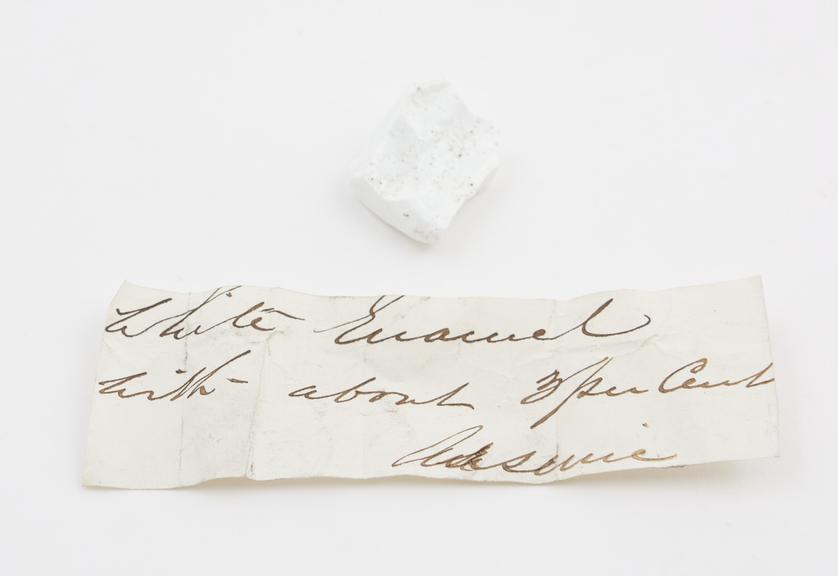 White Enamel
with about 3 per Cent
Arsenic